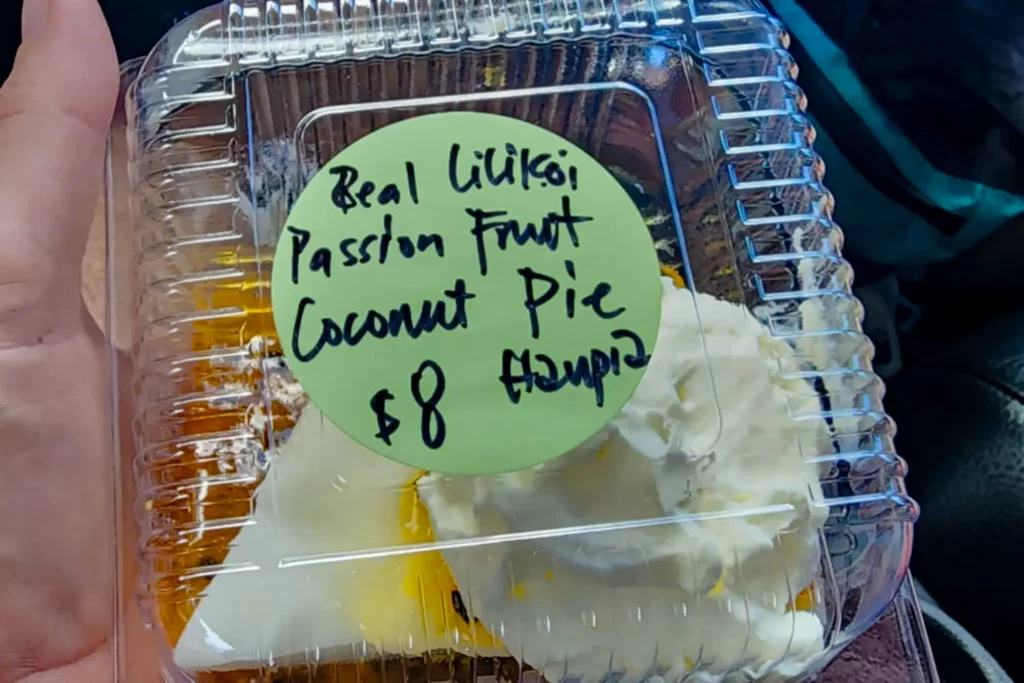 Real Lilikoi
Passion Fruit
Coconut Pie
$8 Haupia